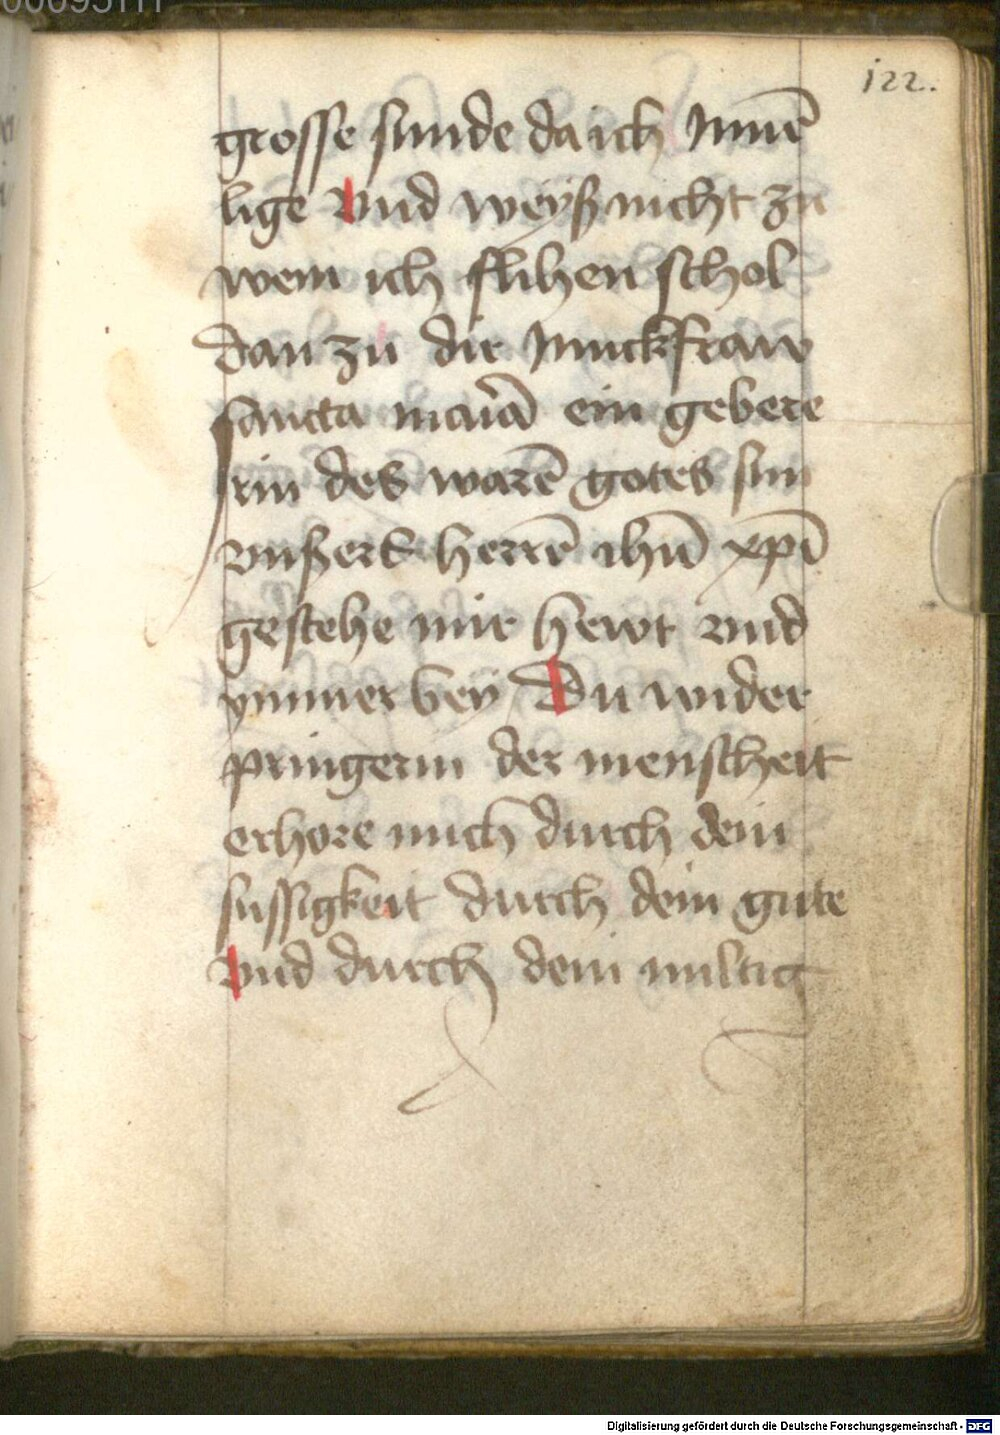 122.
grosse sunde da ich Jnnē
lige vnd weyß nicht zu
wem ich flihen schol
dan zu dir Junckfraw
sancta maria ein gebere
rin des warē gotes sun
vnßers herrē ihū xpī
gestehe mir hewt vnd
ymmer bey Du wider
pringerin der menscheit
erhore mich durch dein
sussigkeit durch dein gute
vnd durch dein miltig
Digitalisierung gefördert durch die Deutsche Forschungsgemeinschaft - DFG